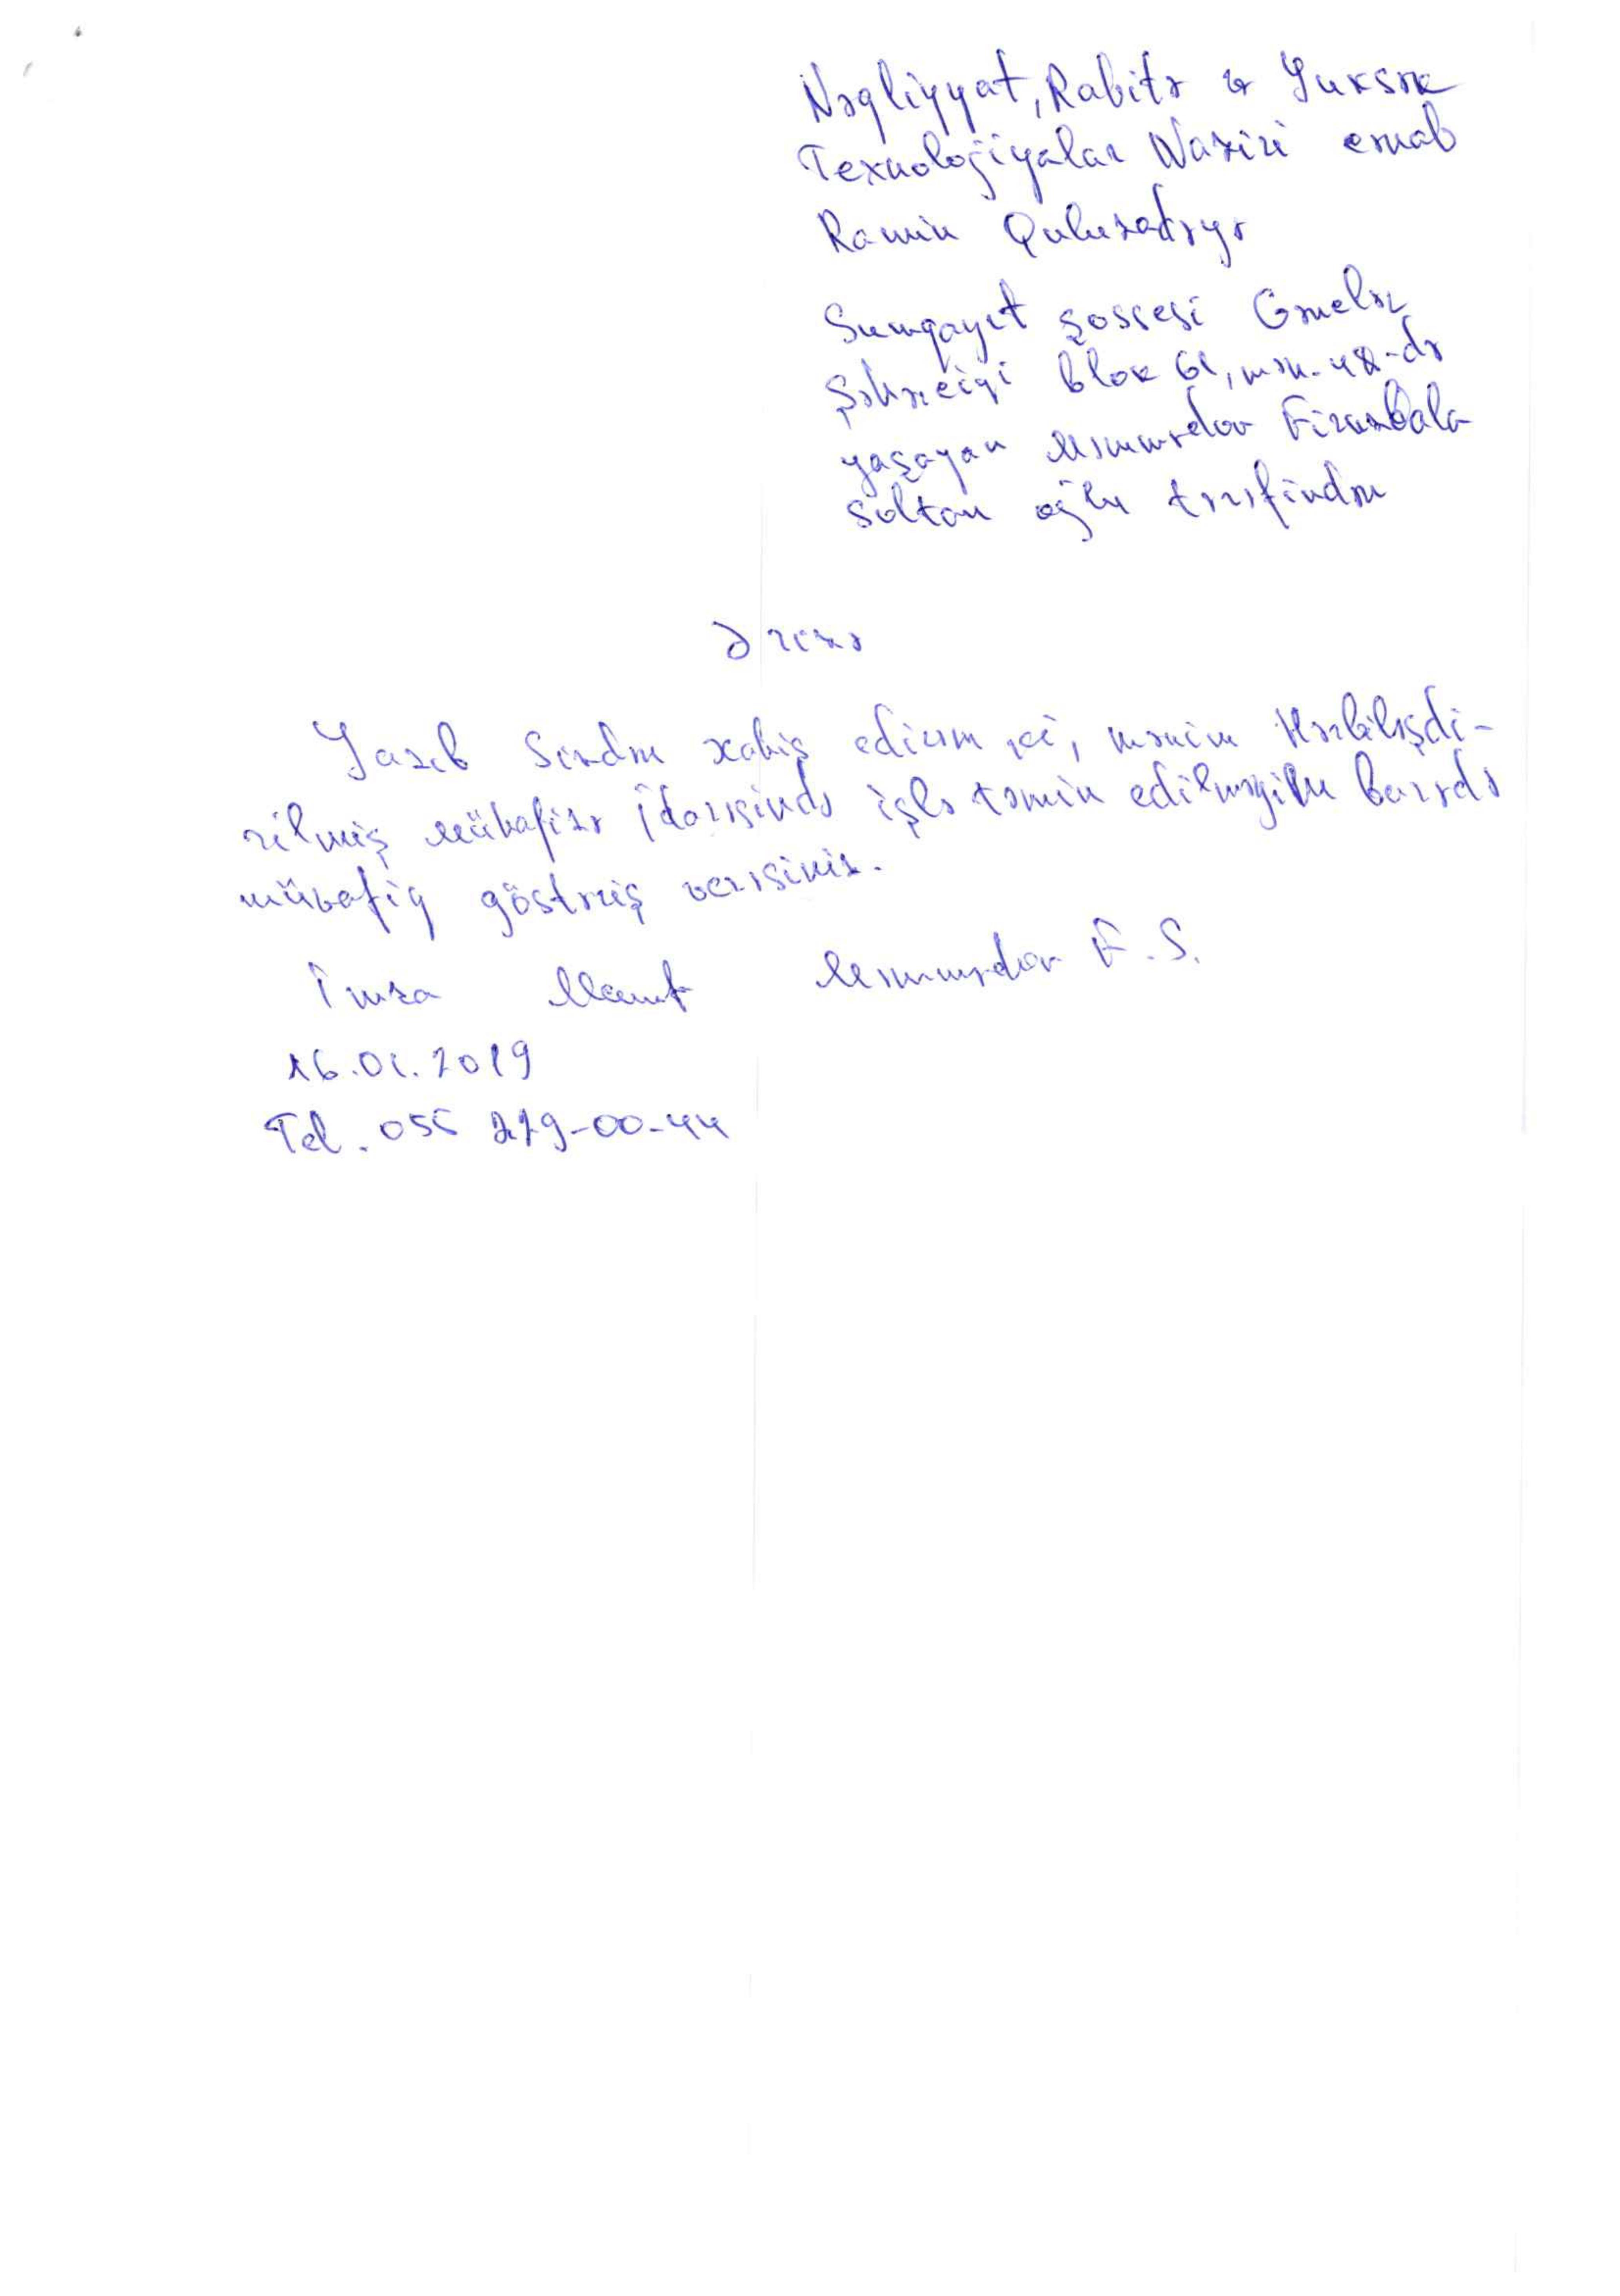 Nəqliyyat, Rabitə və Yuksək
Texnologiyalar Naziri cənab
Ramin Quluzadəyə
Sumqayıt şossesi Gənclər
Şəhərciyi blok 61, mən. 48-də
yaşayan Məmmədov Firuzbala
Soltan oğlu tərəfindən
Ərizə
Yazıb Sizdən xahiş edirəm ki, mənim Hərbiləşdi-
rilmiş Mühafizə İdarəsində işlə təmin edilməyim barədə
müvafiq göstəriş verəsiniz.
İmza Məmmədov F.S.
16.01.2019
Tel. 055 279-00-44